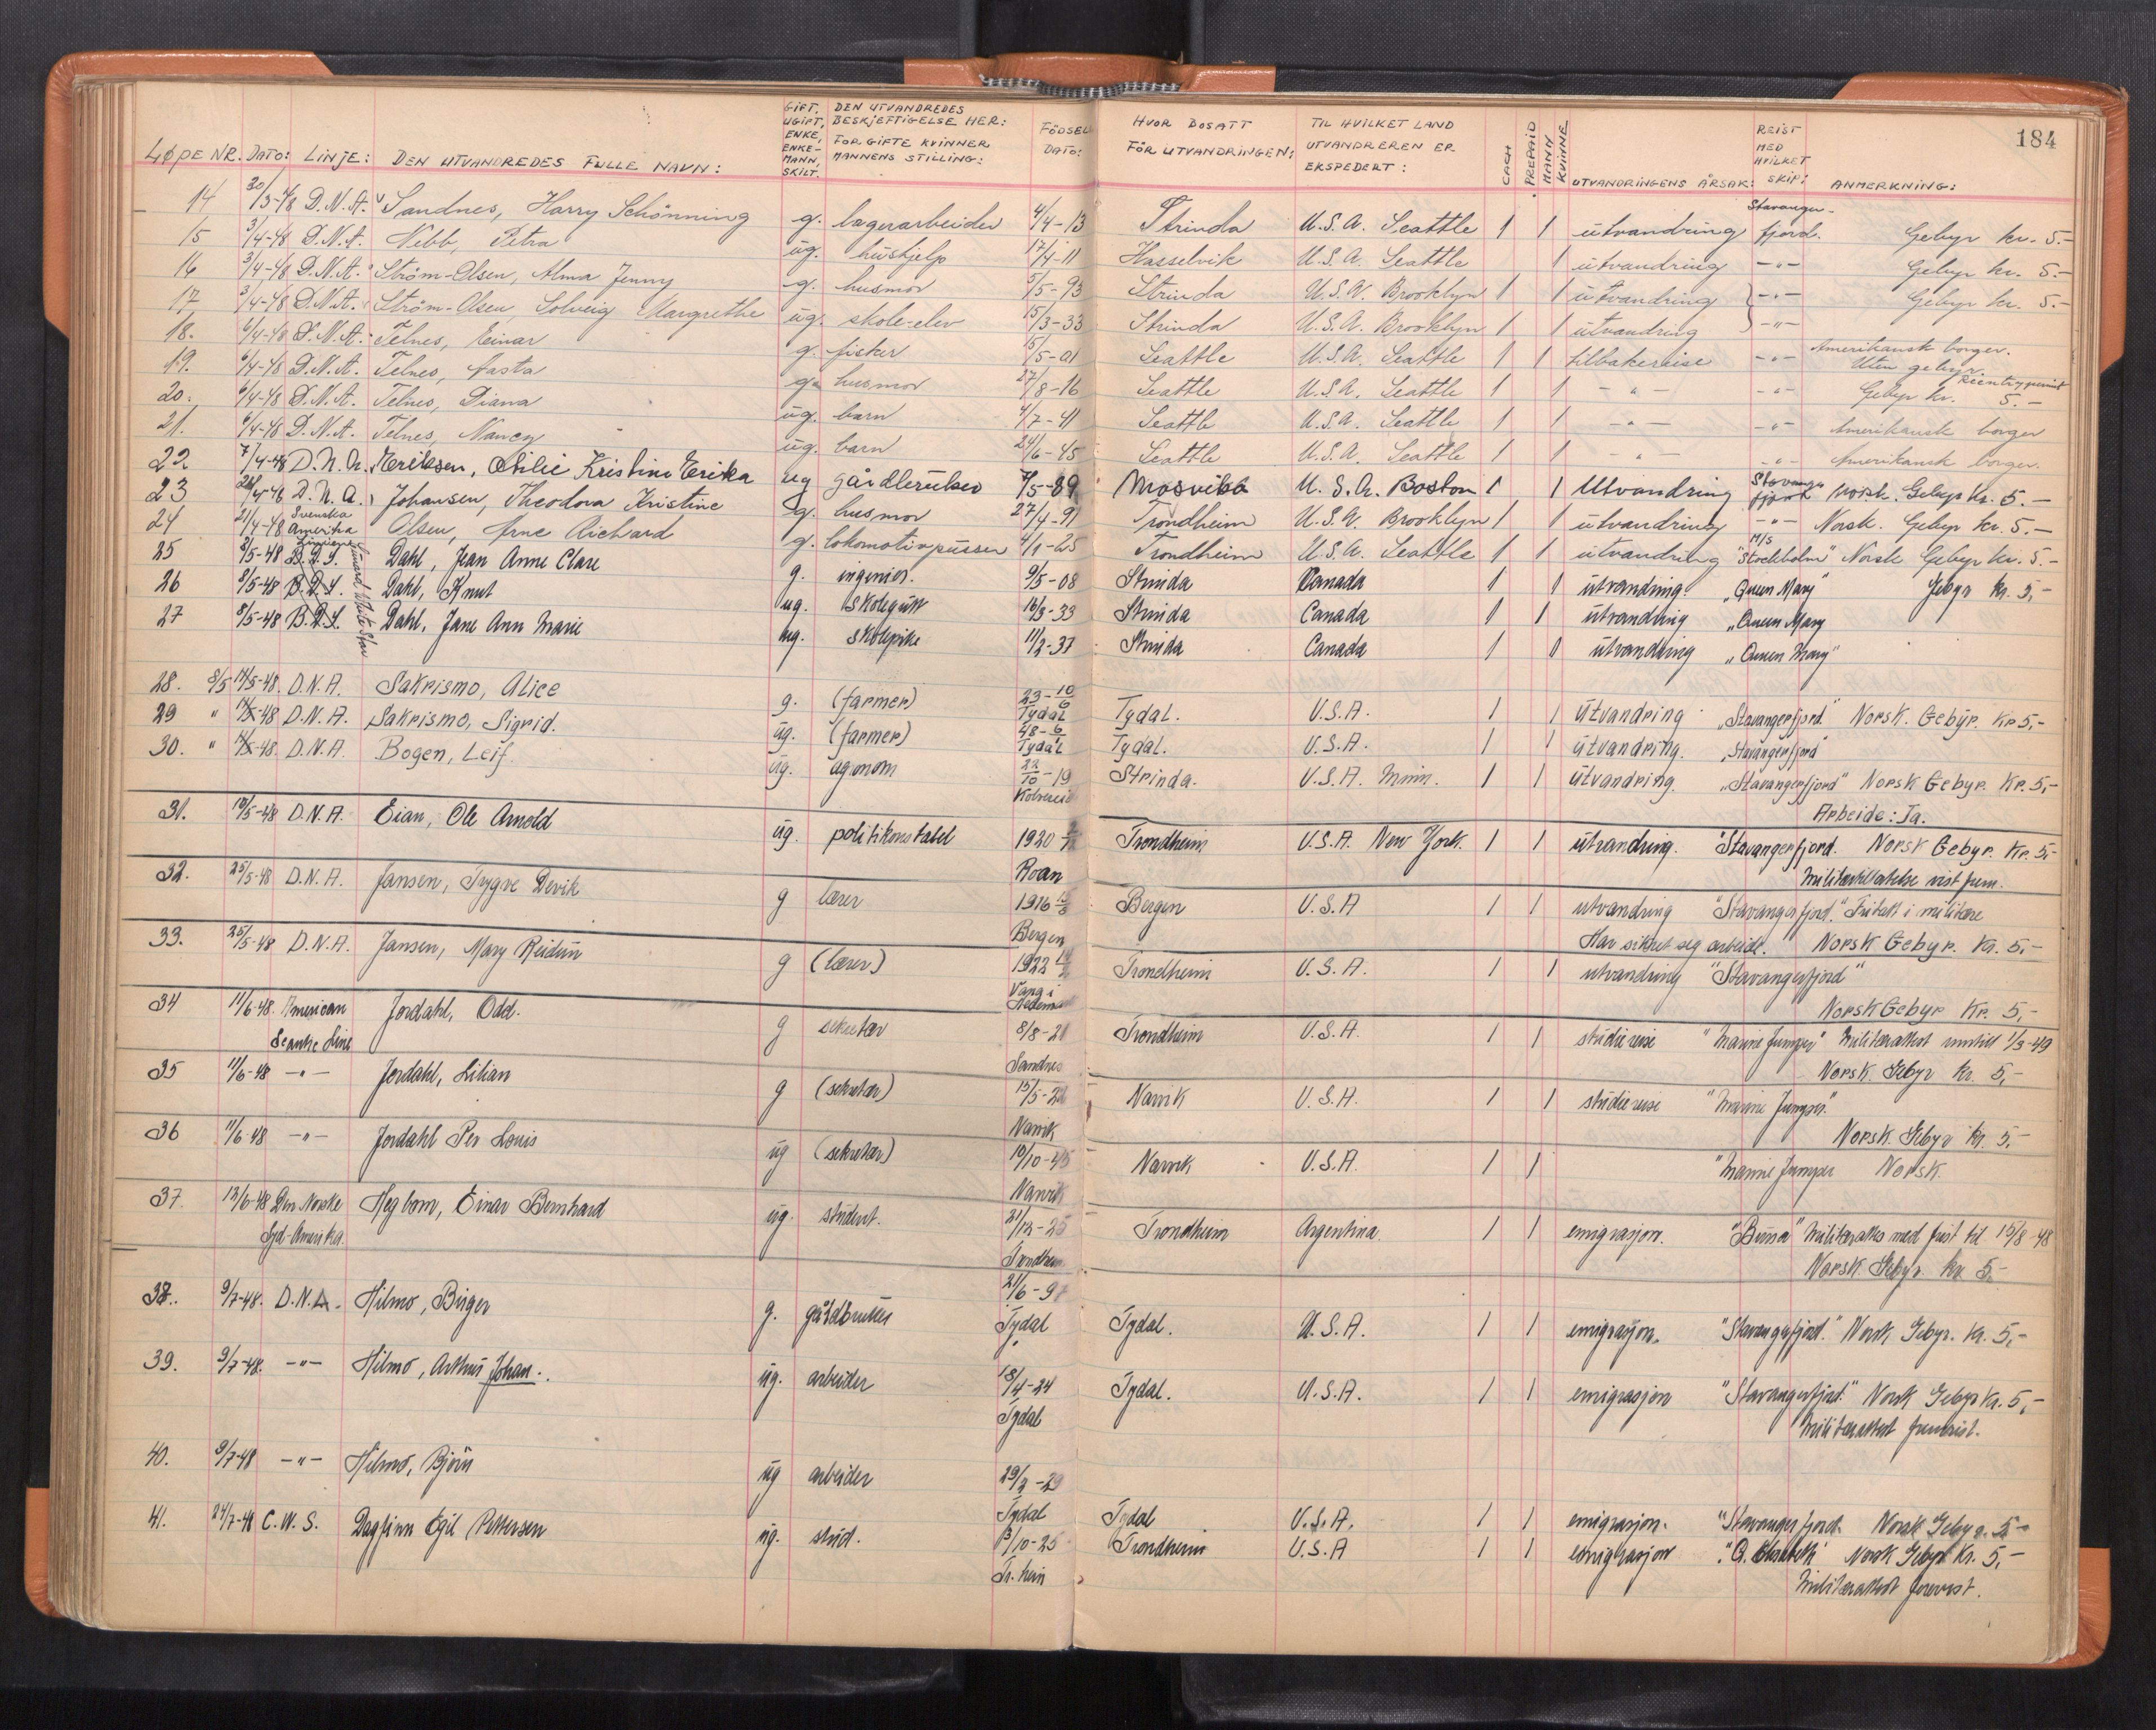 184
LØPE NR. DATO: LINJE: DEN UTVANDREDES FULLE NAVN: GIFT, UGIFT, ENKE, ENKE-MANN, SKILT. DEN UTVANDREDES BESKJEFTIGELSE HER: FOR GIFTE KVINNER MANNENS STILLING: FÖDSEL DATO: HVOR BOSATT FÖR UTVANDRINGEN: TIL HVILKET LAND UTVANDREREN ER EKSPEDERT: CACH PREPAID MANN KVINNE UTVANDRINGENS ÅRSAK: REIST MED HVILKET SKIP: ANMERKNING:
14 30/3-48 D.N.A. Sandnes, Harry Schönning g. lagerarbeider 4/4-13 Strinda U.S.A. Seattle 1 1 utvandring Stavangerfjord. Gebyr kr. 5.-
15 3/4-48 D.N.A. Nebb, Petra ug. hushjelp 17/4-11 Hasselvik U.S.A. Seattle 1 utvandring -"- Gebyr kr. 5.-
16 3/4-48 D.N.A. Ström-Olsen, Alma Jenny g. husmor 5/5-93 Strinda U.S.A. Brooklyn 1 1 utvandring -"- Gebyr kr. 5.-
17 3/4-48 D.N.A. Ström-Olsen, Solveig Margrethe ug. skole-elev 15/3-33 Strinda U.S.A. Brooklyn 1 1 utvandring -"-
18. 6/4-48 D.N.A. Telnes, Einar g. fisker 5/5-01 Seattle U.S.A. Seattle 1 1 tilbakereise -"- Amerikansk borger. Uten gebyr.
19. 6/4-48 D.N.A. Telnes, Aasta g. husmor 27/8-16 Seattle U.S.A. Seattle 1 1 -"- -"- Reentrypermit Gebyr kr. 5.-
20. 6/4-48 D.N.A. Telnes, Diana ug. barn 4/7-41 Seattle U.S.A. Seattle 1 1 -"- -"- Amerikansk borger
21. 6/4-48 D.N.A. Telnes, Nancy ug. barn 24/6-45 Seattle U.S.A. Seattle 1 1 -"- -"- Amerikansk borger.
22 7/4-48 D.N.A. Eriksen, Otilie Kristine Erika ug gårdbruker 7/5-89 Mosvika U.S.A. Boston 1 1 Utvandring Stavangerfjord Norsk. Gebyr kr. 5.-
23 D.N.A. Johansen, Theodora Kristine g. husmor 27/4-91 Trondheim U.S.A. Brooklyn 1 1 utvandring -"- Norsk. Gebyr kr. 5.-
24 21/4-48 Svenska Amerika Linjens Olsen, Arne Richard g. lokomotivpusser 4/1-25 Trondheim U.S.A. Seattle 1 1 utvandring M/S "Stockholm" Norsk Gebyr kr. 5.-
25 8/5-48 B.D.S. Dahl, Jean Anne Clare g. ingeniör. 9/5-08 Strinda Canada 1 1 utvandring. "Queen Mary" Gebyr kr. 5,-
Cunard White Star
26 8/5-48 B.D.S. Dahl, Knut ug. skolegutt 16/3-33 Strinda Canada 1 1 utvandring "Queen Mary
27 8/5-48 B.D.S. Dahl, Jane Ann Marie ug. skolepike 11/2-37 Strinda Canada 1 1 utvandring "Queen Mary"
28. 8/5 14/5-48. D.N.A. Sakrismo, Alice g. (farmer) 23-10/6 Tydal Tydal. U.S.A. 1 1 utvandring "Stavangerfjord" Norsk. Gebyr. kr 5,-
29 " 14/5-48 D.N.A. Sakrismo, Sigrid. ug. (farmer) Tydal Tydal. U.S.A. 1 1 utvandring. "Stavangerfjord"
30. " 14/5-48. D.N.A. Bogen, Leif. ug. agronom 22/10-19 Kolvereid Strinda. U.S.A. Minn. 1 1 utvandring. "Stavangerfjord" Norsk Gebyr. Kr. 5,-
Arbeide: Ja.
31. 10/5-48 D.N.A. Eian, Ole Arnold ug. politikonstabel 1920 Roan Trondheim U.S.A. New York. 1 1 utvandring. "Stavangerfjord. Norsk Gebyr. Kr. 5,-
Militærtillatelse vist frem.
32. 25/5-48 D.N.A. Jansen, Trygve Devik g lærer 1916 Bergen Bergen U.S.A 1 1 utvandring "Stavangerfjord." Fritatt i militære
Har sikret seg arbeide. Norsk Gebyr. Kr. 5,-
33. 25/5-48 D.N.A. Jansen, Mary Reidun g (lærer) 1922 Vang i Hedemark Trondheim U.S.A. 1 1 utvandring "Stavangerfjord"
Norsk Gebyr Kr. 5,-
34 11/6-48. American Scantic Line Jordahl, Odd. g sekretær 8/8-21 Sandnes Trondheim U.S.A. 1 1 studiereise "Marine Jumper" Militærattest inntill 1/3-49
Norsk. Gebyr kr. 5,-
35 11/6-48 -"- Jordahl, Lilian g (sekretær) 15/5-22 Narvik Narvik U.S.A. 1 1 studiereise "Marine Jumper."
Norsk. Gebyr kr. 5,-
36 11/6-48 -"- Jordahl Per Louis ug (sekretær) 10/10-45 Narvik Narvik U.S.A. 1 1 "Marine Jumper Norsk.
37. 12/6-48 Den Norske Syd-Amerika. Hegbom, Einar Bernhard ug. student. 21/12-25 Trondheim Trondheim Argentina. 1 1 emigrasjon. "Buna" Militærattest med frist til 15/8-48
Norsk. Gebyr. kr 5.-
38. 9/7-48. D.N.A. Hilmo, Birger g. gårdbruker Tydal Tydal. U.S.A. 1 1 emigrasjon. "Stavangerfjord." Norsk Gebyr. Kr. 5,-
39. 9/7-48. -"- Hilmo, Arthur Johan. ug. arbeider 18/4-24 Tydal Tydal. U.S.A. 1 1 emigrasjon "Stavangerfjord." Norsk Gebyr Kr. 5,-
Militærattest fremvist.
40. 9/7-48 -"- Hilmo, Björn ug arbeider Tydal Tydal U.S.A. 1 1 emigrasjon. "Stavangerfjord. Norsk Gebyr. 5,-
41. 24/7-48 C.W.S. Dagfinn Egil Pettersen ug. stud. 13/10-25 Tr.heim Trondheim U.S.A 1 1 emigrasjon "Q. Elisabeth" Norsk Gebyr Kr. 5,-
Militærattest forevist.